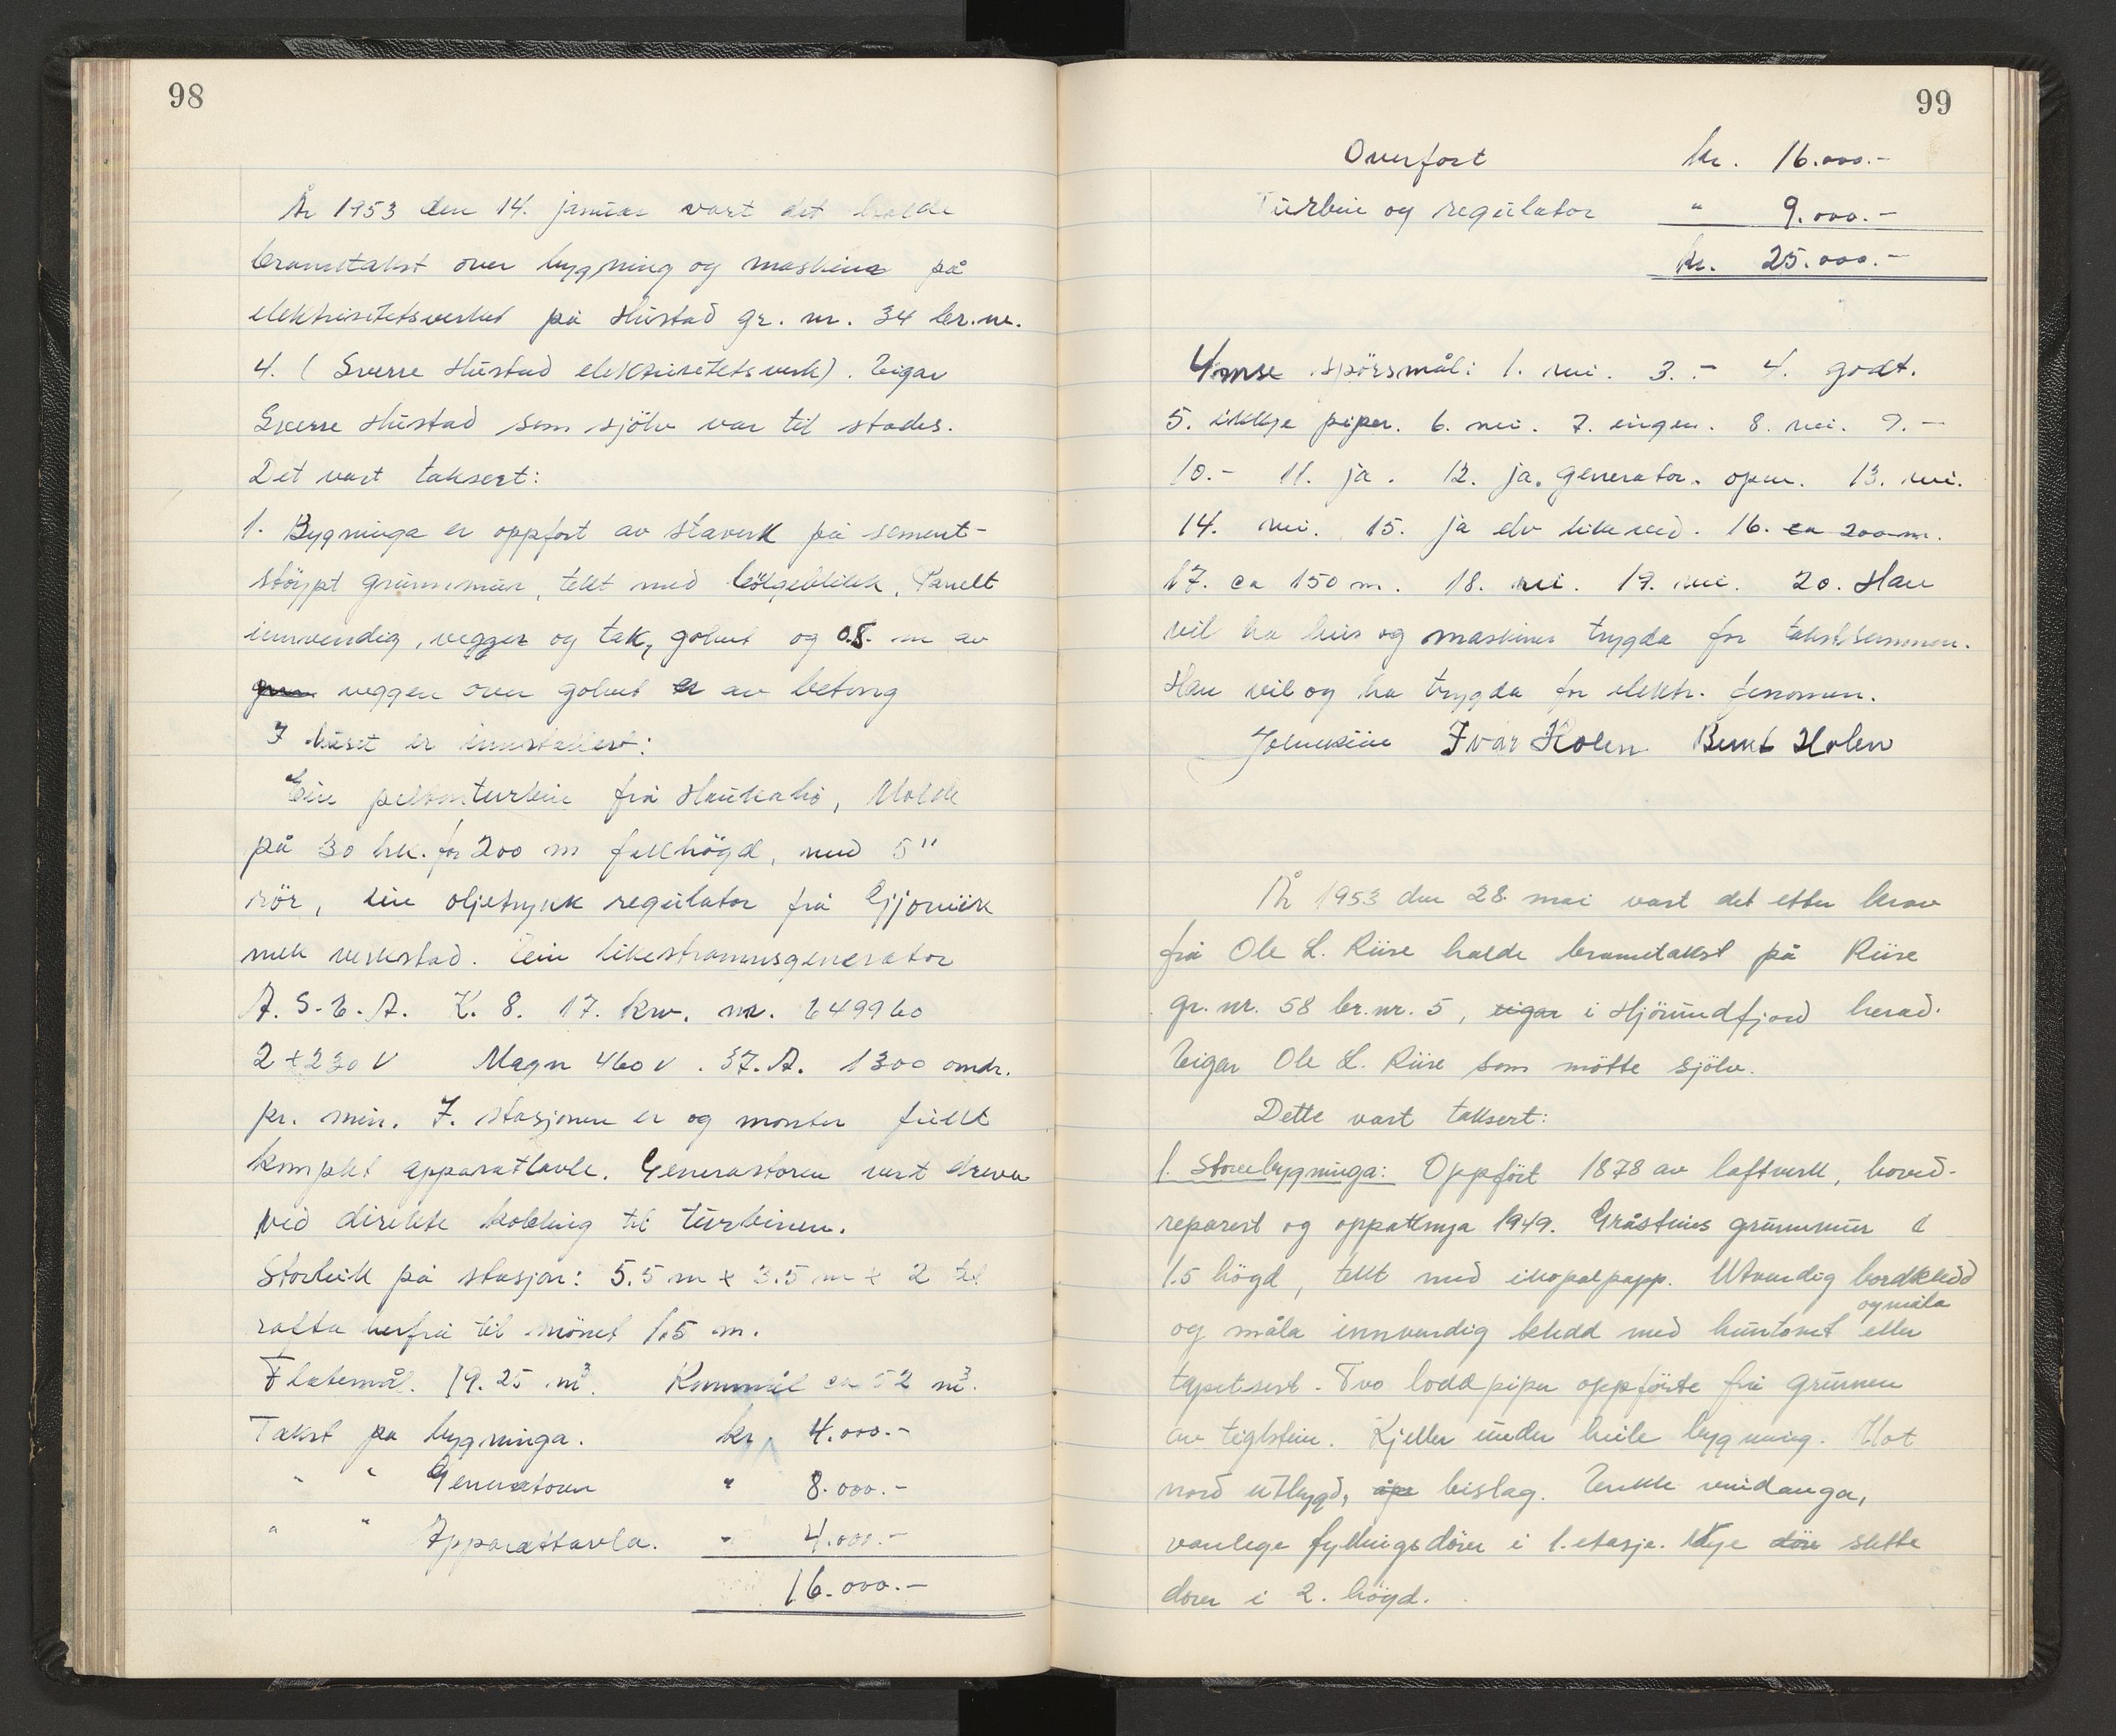 98
År 1953 den 14. januar vart det halde
branntakst over bygning og maskiner på
elektrisitetsverket på Hustad gr. nr. 34 br.nr.
4. (Sverre Hustad elektrisitetsverk). Eigar
Sverre Hustad som sjölv var til stades.
Det vart taksert:
1. Bygninga er oppfört av staverk på sement-
stöypt grunnmur, tekt med bölgeblikk, Panelt
innvendig, vegger og tak, golvet og 0.8. m av
veggen over golvet er av betong
I huset er innstallert:
Ein peltonturbin frå Haukabö, Molde
på 30 hk. for 200 m fallhögd, med 5"
rör, ein oljetrykk regulator frå Gjövik
mek verkstad. Ein likestrømsgenerator
A. S. E. A. K. 8. 17. kw. nr. 649960
2 x 230 V Magn 460 v. 37. A. 1300 omdr.
pr. min. I. stasjonen er og monter fullt
komplet apparattavle. Generatoren vert dreven
ved direkte kobling til turbinen.
Storleik på stasjon: 5.5 m x 3.5 m x 2 til
rafta herfrå til mönet 1.5 m.
Flatemål. 19.25 m³. Rummål ca 52 m³.
Takst på bygninga. kr. 4.000.-
" " Generatoren " 8.000.-
" " Apparattavla. " 4.000.-
16.000.-
99
Overfört kr. 16.000.-
Turbin og regulator " 9.000.-
kr. 25.000.-
Ymse spörsmål: 1. nei. 3. - 4. godt.
5. ikkje piper. 6. nei. 7. eingen. 8. nei. 9. -
10.- 11. ja. 12. ja. generator. open. 13. nei.
14. nei. 15. ja elv like ved. 16. ca 200 m.
17. ca 150 m. 18. nei. 19. nei. 20. Han
vil ha hus og maskiner trygda for takstsummen.
Han vil og ha trygda for elektr. fenomen.
Ivar Holen Bernt Holen
År 1953 den 28. mai vart det etter krav
frå Ole L. Riise halde branntakst på Riise
gr. nr. 58 br.nr. 5, eigar i Hjörundfjord herad.
Eigar Ole L. Riise som mötte sjölv.
Dette vart taksert:
1. Stovebygninga: Oppfört 1878 av laftverk, hoved-
reparert og oppattnya 1949. Gråsteins grunnmur á
1.5 högd, tekt med ikopalpapp. Utvendig bordkledd
og måla innvendig kledd med huntonet og måla eller
tapetsert. Tvo lodd piper oppförte frå grunnen
av teglstein. Kjeller under heile bygning. Mot
nord utbygd, åpe bislag. Enkle vindauga,
vanlege fyllingsdörer i 1. etasje. Nye dörer slette
dörer i 2. högd.